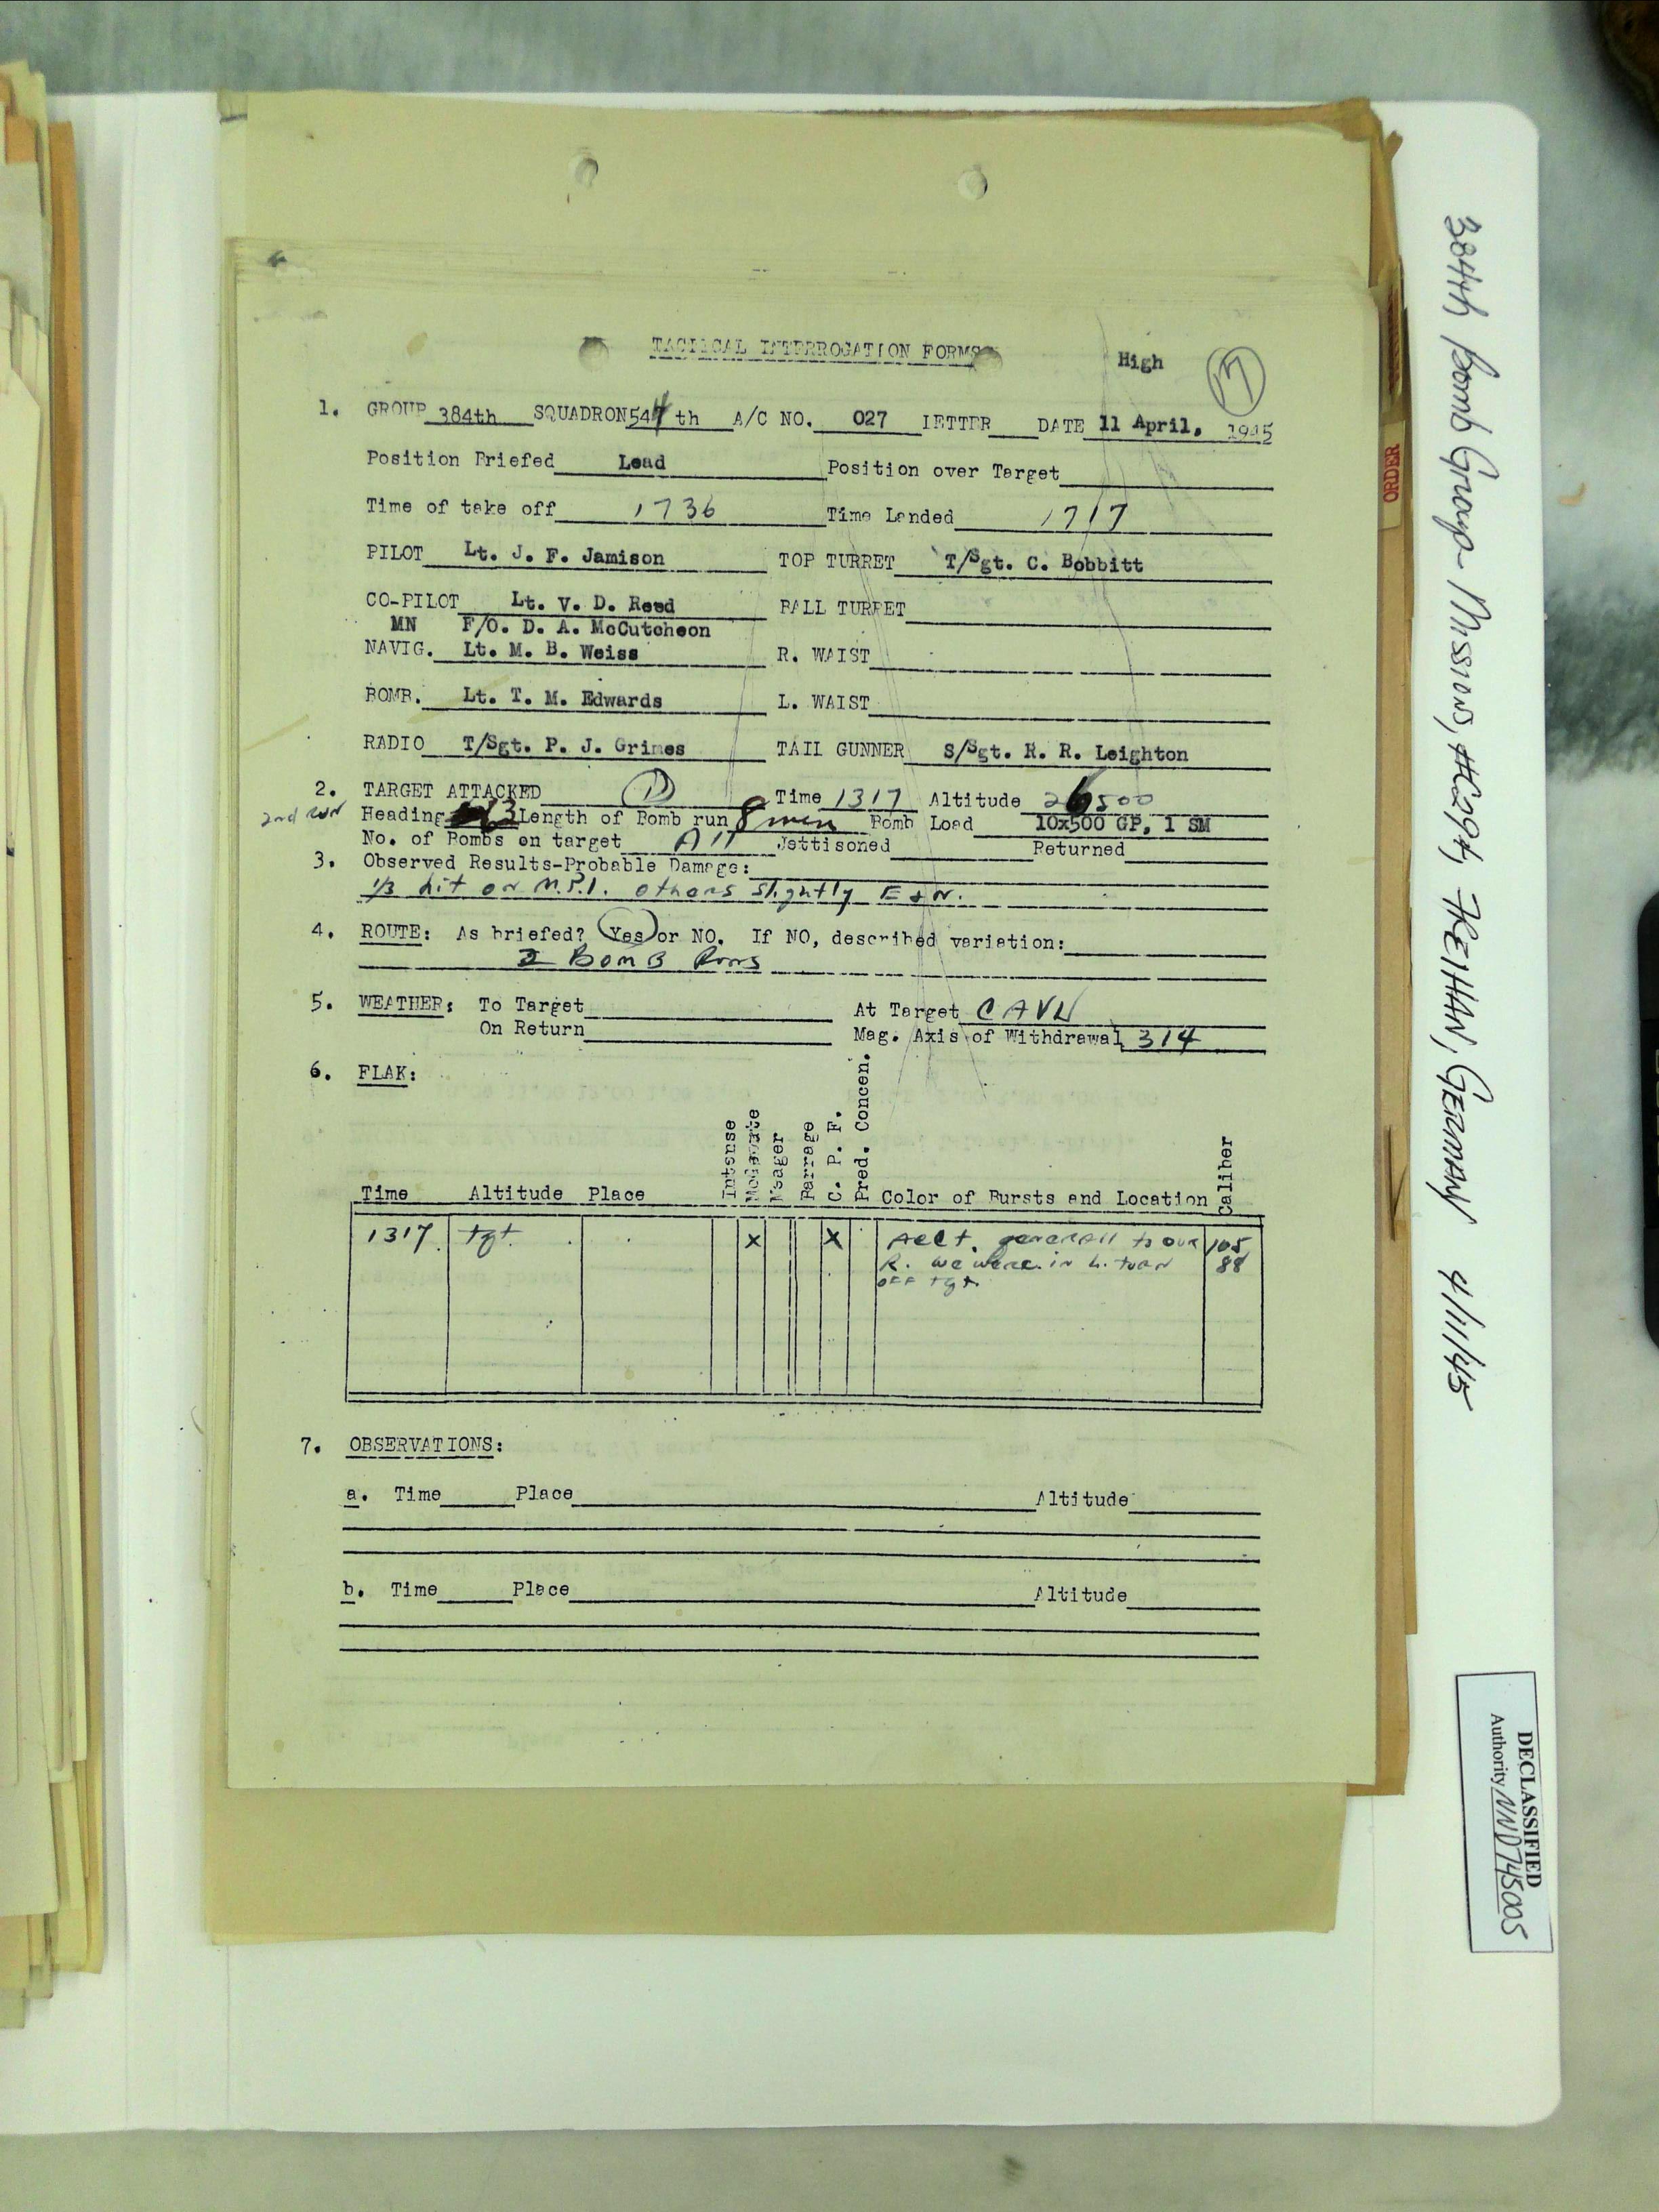 TACTICAL INTERROGATION FORMS
High
17
1. GROUP 384th SQUADRON 544th A/C NO. 027 LETTER DATE 11 April, 1945
Position Briefed Lead Position over Target
Time of take off 1736 Time Landed 1717
PILOT Lt. J. F. Jamison TOP TURRET T/Sgt. C. Bobbitt
CO-PILOT Lt. V. D. Reed BALL TURRET
MN F/O. D. A. McCutcheon
NAVIG. Lt. M. B. Weiss R. WAIST
BOMB. Lt. T. M. Edwards L. WAIST
RADIO T/Sgt. P. J. Grimes TAIL GUNNER S/Sgt. R. R. Leighton
2. TARGET ATTACKED Time 1317 Altitude 26500
2nd run Heading Length of Bomb run 8 min Bomb Load 10x500 GP, 1 SM
No. of Bombs on target All Jettisoned Returned
3. Observed Results-Probable Damage:
1/3 hit on M.P.I. others slightly E & N.
4. ROUTE: As briefed? Yes or NO. If NO, described variation:
2 Bomb Runs
5. WEATHER: To Target At Target CAVU
On Return Mag. Axis of Withdrawal 314
6. FLAK:
Time Altitude Place Intense Moderate Meager Barrage C. P. F. Pred. Concen. Color of Bursts and Location Caliber
1317 tgt. x x Acct. generall to our 105
R. we were in L. turn 88
off tgt.
7. OBSERVATIONS:
a. Time Place Altitude
b. Time Place Altitude
384th Bomb Group - Missions, #294, FREIHAN, GERMANY 4/11/45
ORDER
DECLASSIFIED
Authority NND745005